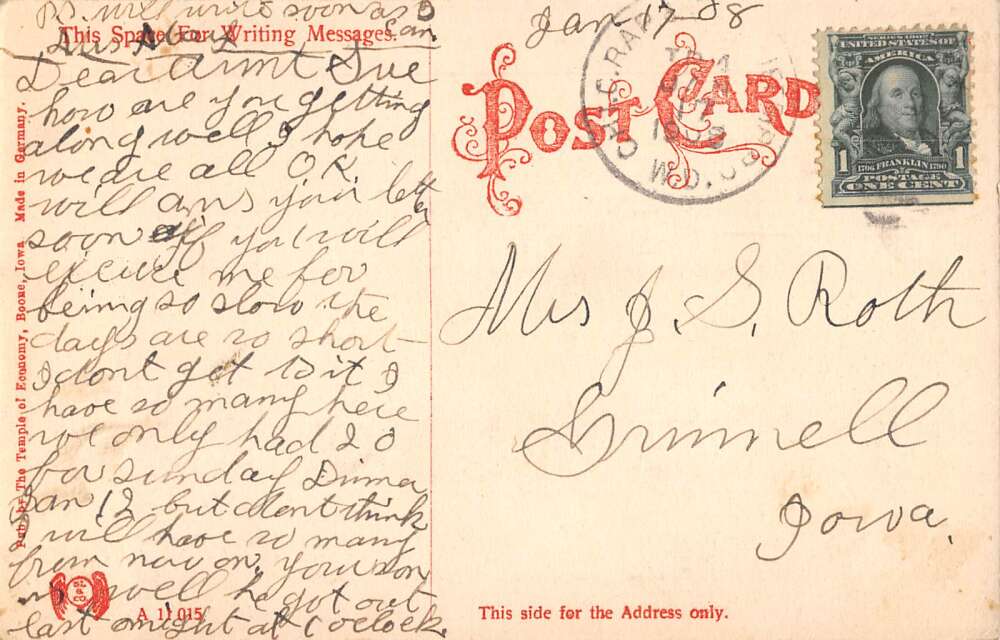 P.S. will write soon as I can
This Space For Writing Messages.
Dear Aunt Sue
how are you getting
along well I hope
we are all O.K.
will ans your letter
soon if you will
excuse me for
being so slow the
days are so short
I dont get to it I
have so many here
we only had 20
for Sunday Dinner
Jan 12 but dont think
I will have so many
from now on. your son
is well he got out
last night at 6 oclock.
Pub. by The Temple of Economy, Boone, Iowa. Made in Germany.
A 11015
Jan 17 08
POST CARD
SERIES 1902
UNITED STATES OF AMERICA
1706 FRANKLIN 1790
1 1
POSTAGE
ONE CENT
Mrs J. S. Roth
Grinnell
Iowa.
This side for the Address only.